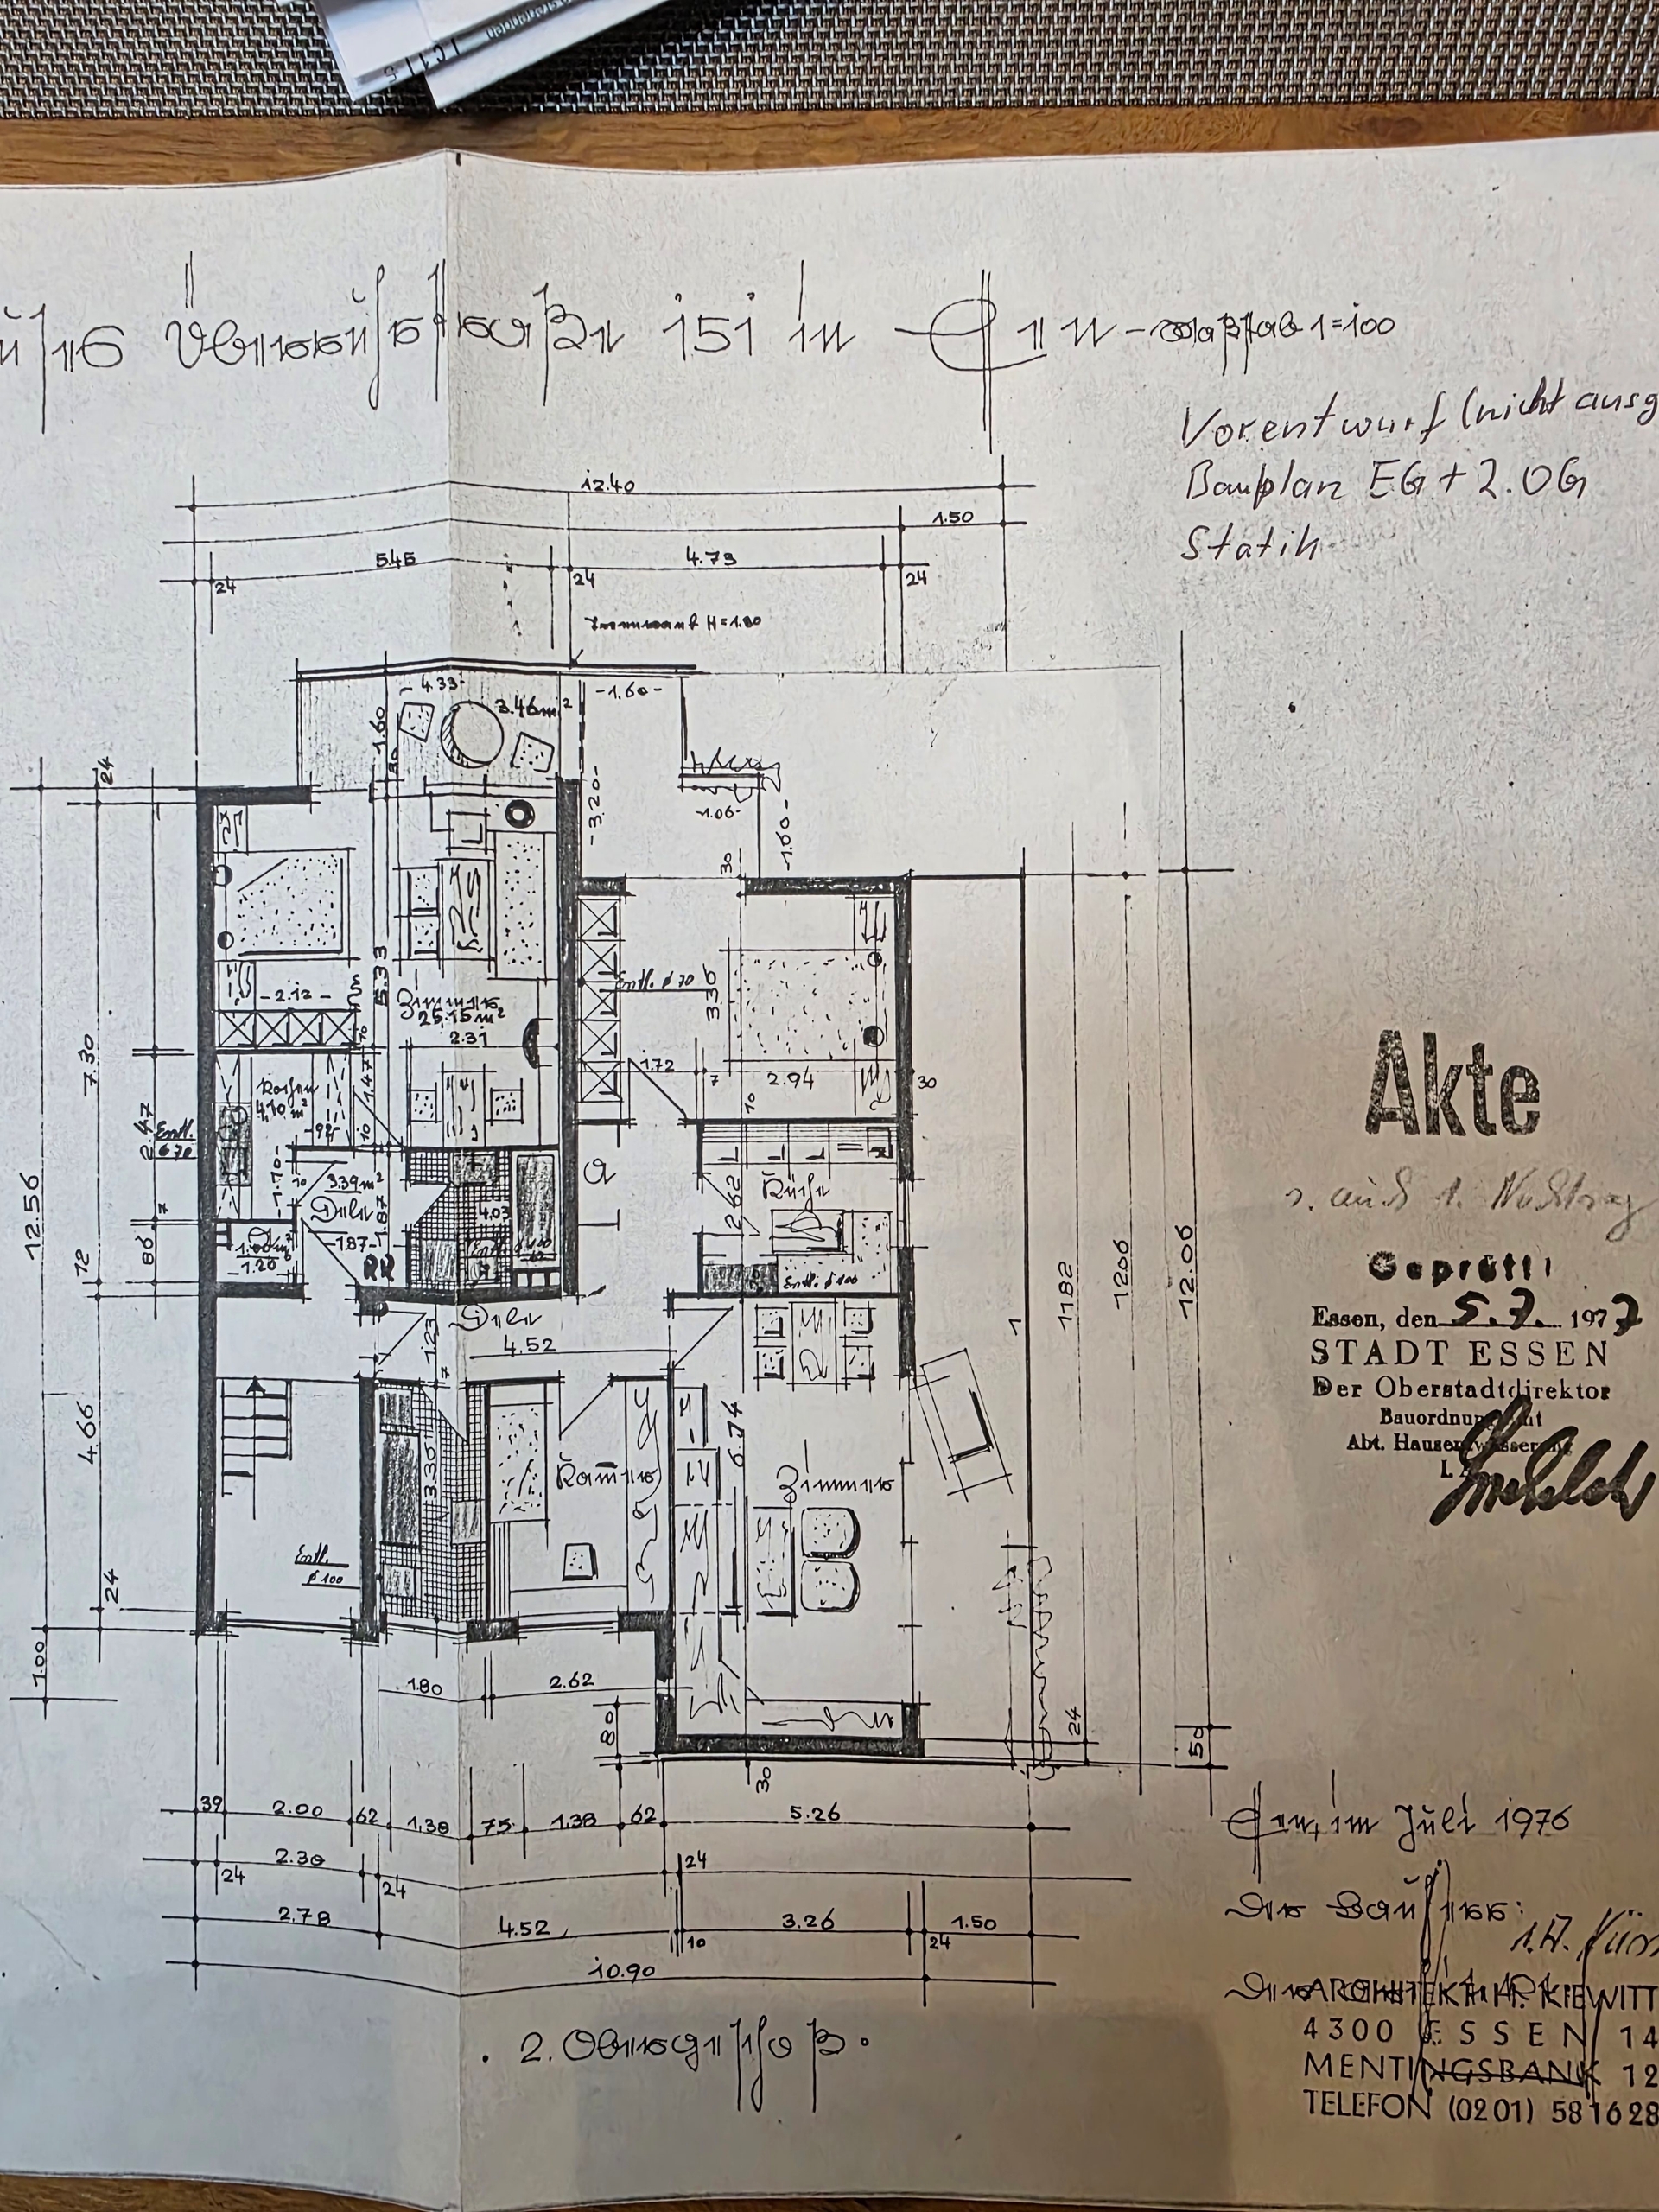 151 in
1=100
Vorentwurf (nicht ausg
Bauplan EG + 2.OG
Statik
12.40
1.50
5.45
4.73
24
24
24
H=1.80
4.33
3.46m²
-1.60-
1.60
24
-3.20-
-1.06-
-1.60-
30
5.33
-2.12-
Zimmer
25.15m²
2.31
Entl. ø 70
3.36
1.72
7
2.94
30
10
7.30
Kochen
4.10 m²
1.47
10
2.47
Entl.
ø 70
3.39m²
Diele
1.87
-1.87-
4.03
RR
1.20
86
7
72
12.56
Küche
2.62
Entl. ø 100
Diele
4.52
1.23
7
4.66
3.30
Kammer
6.74
Zimmer
Entl.
ø 100
24
1.00
1
1182
1206
12.06
1.80
2.62
80
30
24
50
39
2.00
62
1.38
75
1.38
62
5.26
2.30
24
24
24
2.78
4.52
10
3.26
24
1.50
10.90
2. Obergeschoß.
Akte
s. auch 1. Nachtrag
Geprüft!
Essen, den 5.7. 1977
STADT ESSEN
Der Oberstadtdirektor
Bauordnungsamt
Abt. Hausentwässerung
Essen, im Juli 1976
Der Bauherr:
ARCHITEKT H. KIEWITT
4300 ESSEN 14
MENTINGSBANK 12
TELEFON (0201) 581628